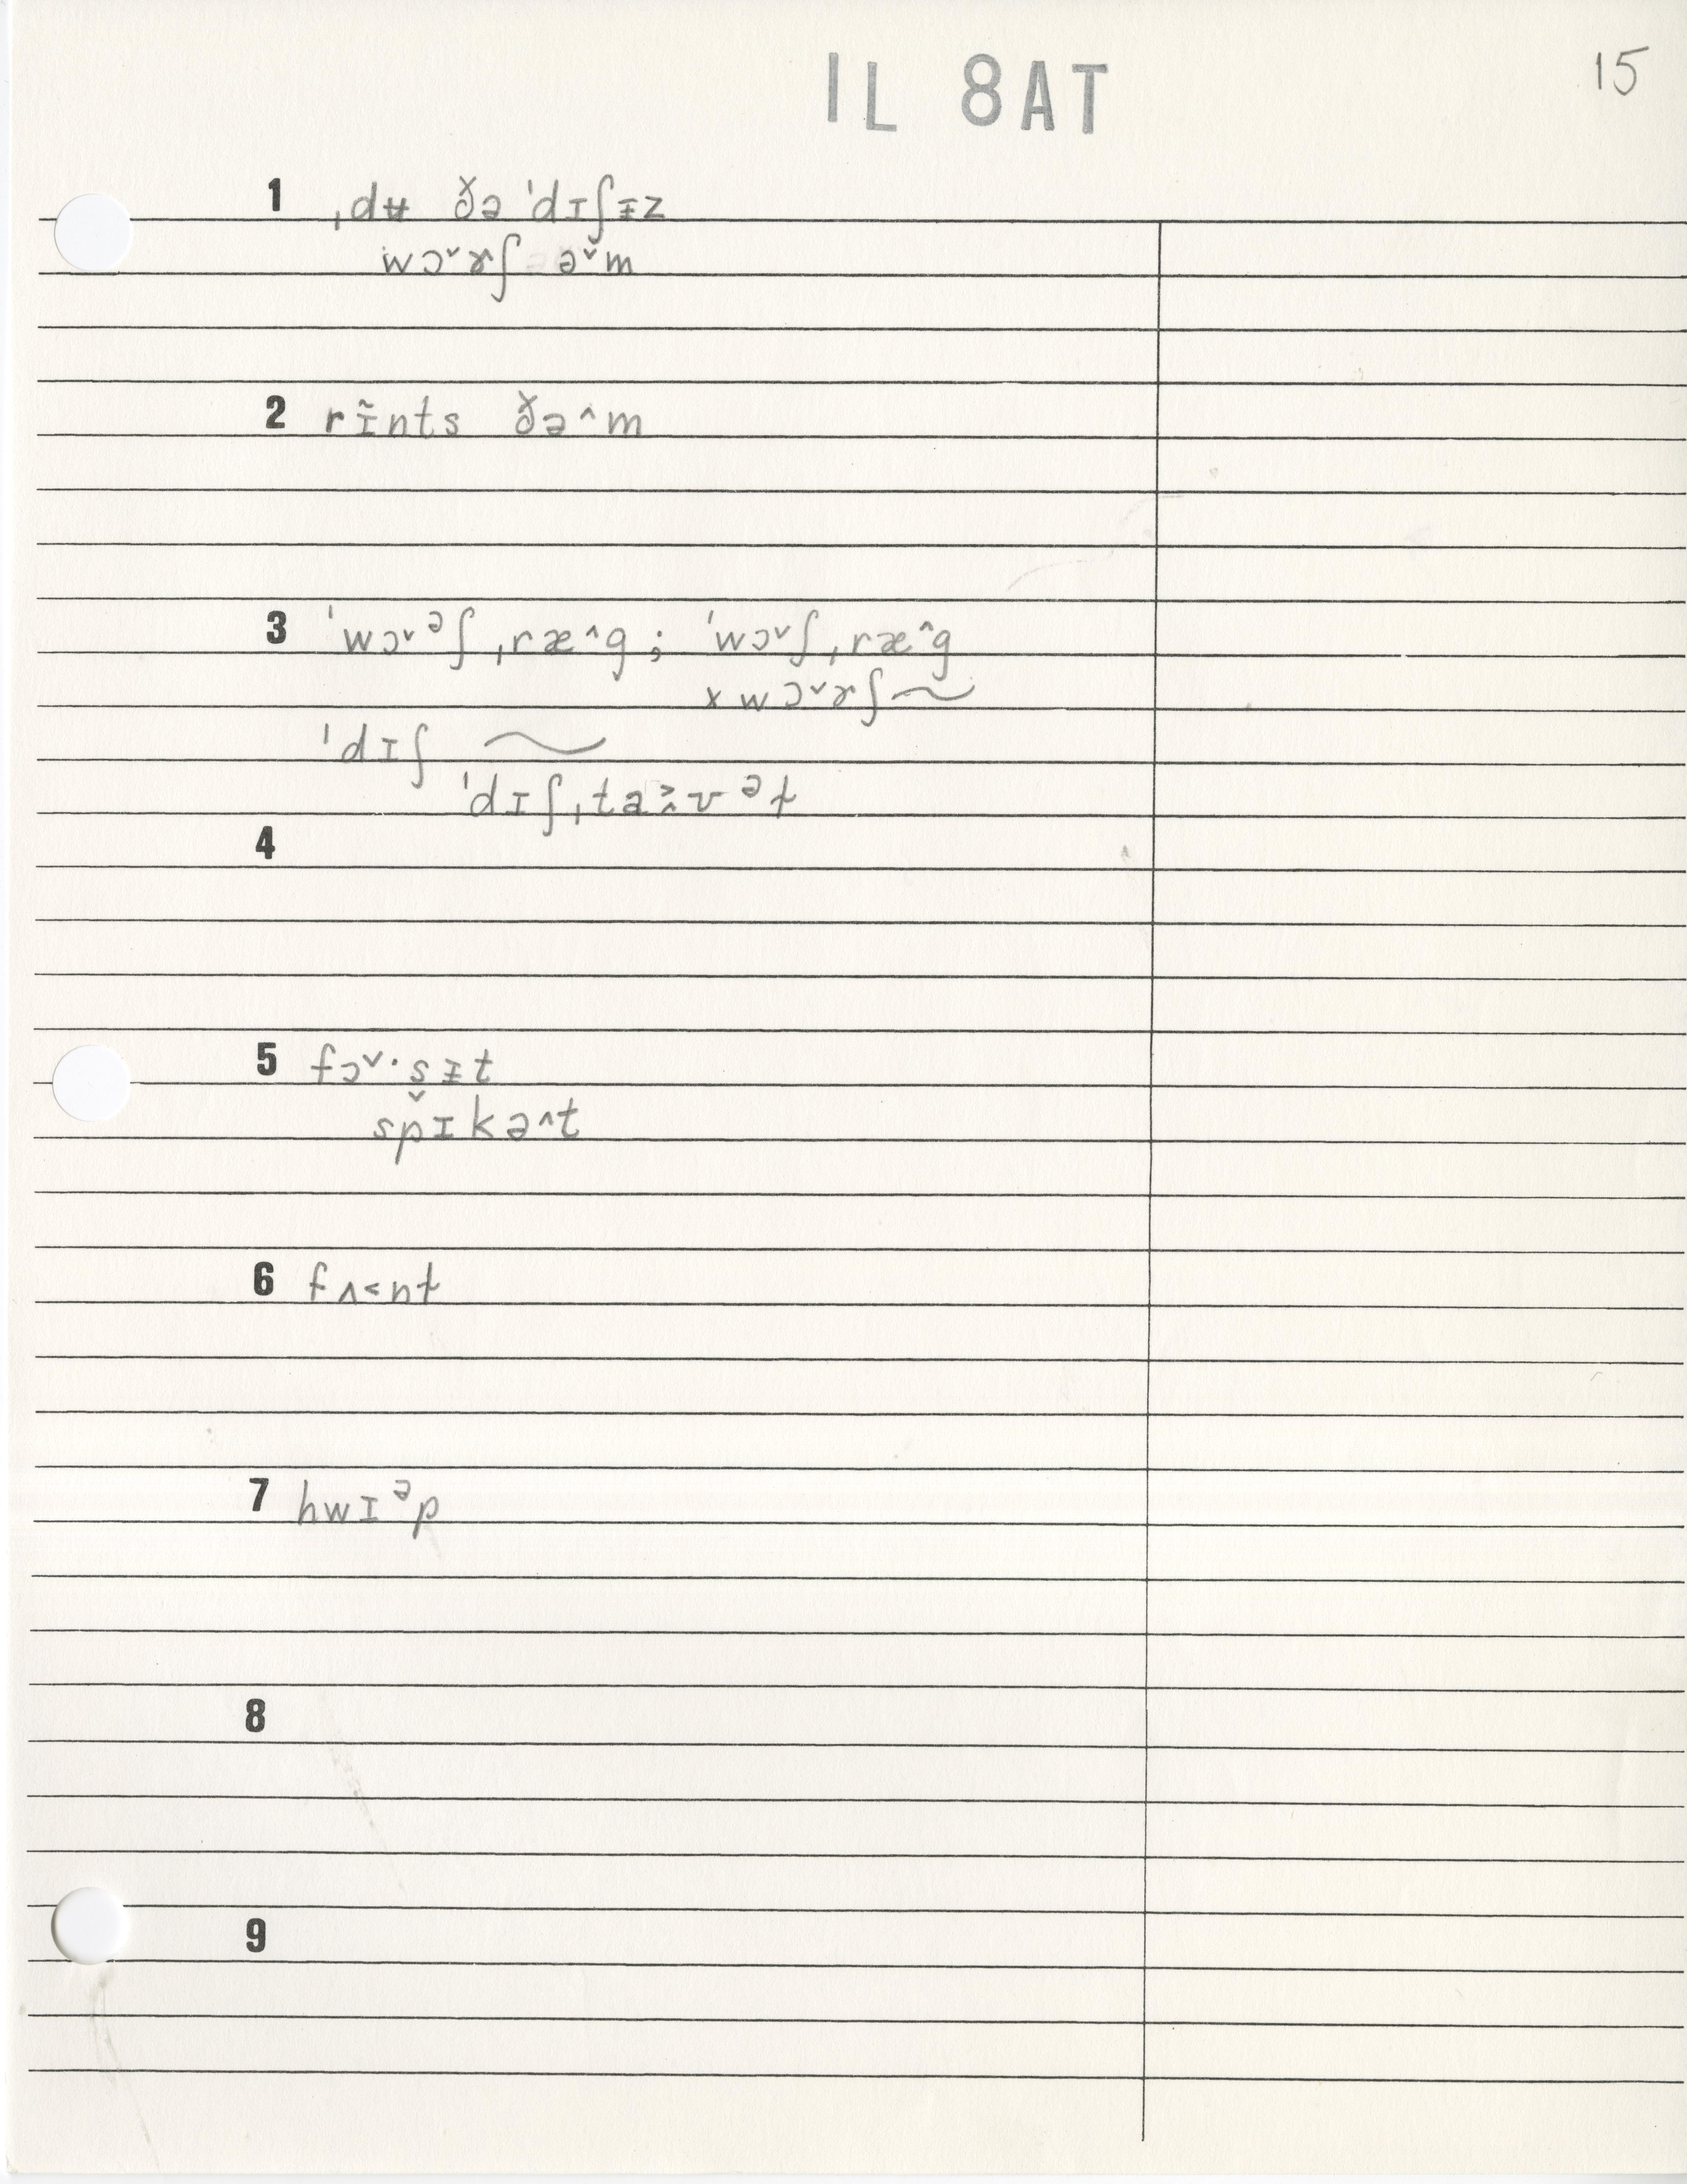 IL 8AT
15
1 ˌdʉ ðə ˈdɪʃɨz
wɔˇɤʃ əˇm
2 rɪ̃nts ðə^m
3 ˈwɔˇᵊʃˌræ^g; ˈwɔˇʃˌræ^g
x wɔˇɤʃ~
ˈdɪʃ ~
ˈdɪʃˌtaˑʊᵊɫ
4
5 fɔˇ·s̬ɨt
spɪkə^t
6 fʌ˂nɫ
7 hwɪᵊp
8
9